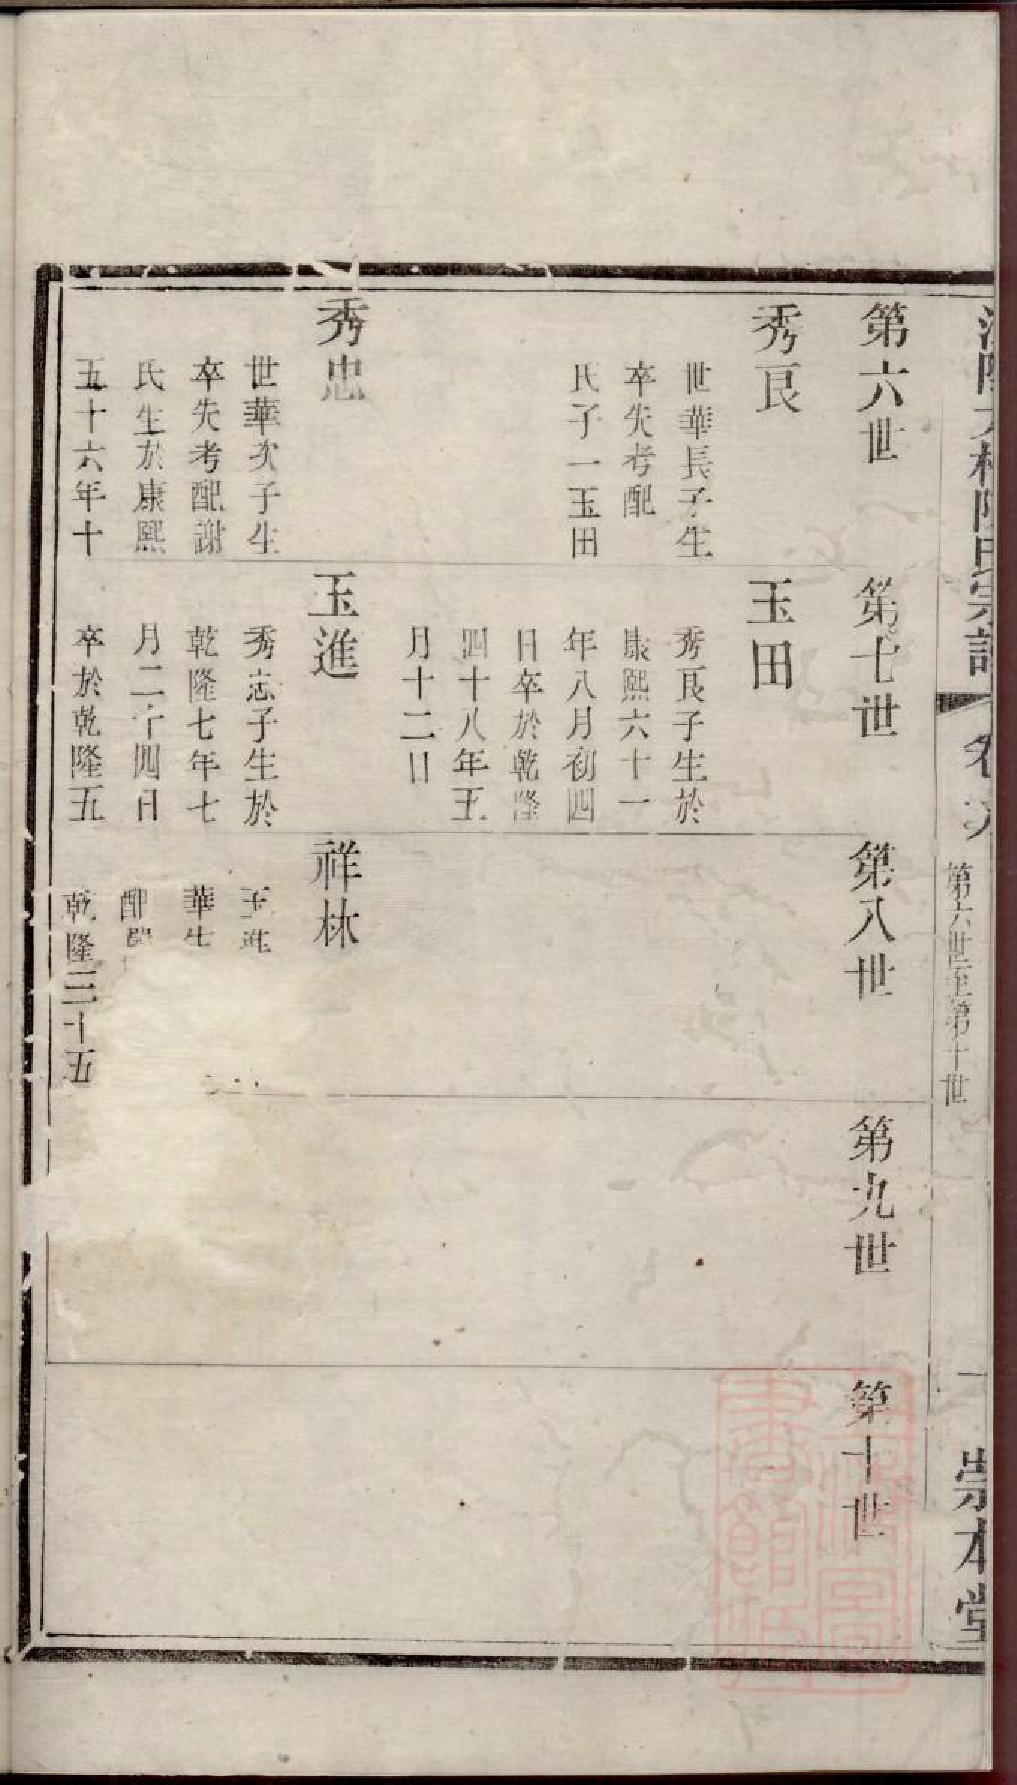 第六世
秀良
世華長子生
卒失考配
氏子一玉田
秀忠
世華次子生
卒失考配謝
氏生於康熙
五十六年十
第七世
玉田
秀良子生於
康熙六十一
年八月初四
日卒於乾隆
四十八年五
月十二日
玉進
秀忠子生於
乾隆七年七
月二十四日
卒於乾隆五
第八世
祥林
玉進
華生
配
乾隆二十五
第九世
第十世
陳氏宗譜
卷六
第六世至第十世
一
崇本堂